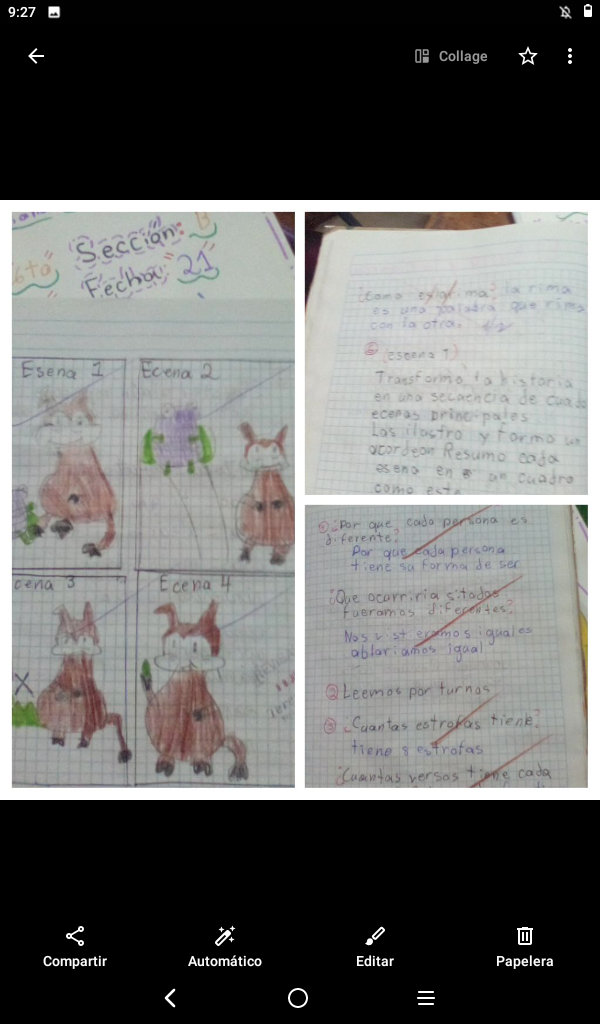 9:27
Collage
Sección: B
6to
Fecha 21
Esena 1
Ecena 2
cena 3
Ecena 4
X
la rima
es una palabra que rima
con la otra.
(escena 1)
Transformo la historia
en una secuencia de cuado
ecenas principales
Las ilustro y formo un
acordeon Resumo cada
esena en un cuadro
como este
① ¿Por que cada persona es
diferente?
Por que cada persona
tiene su forma de ser
¿Que ocurriria si todos
fueramos diferentes?
iguales
ablariamos igual
② Leemos por turnos
③ ¿Cuantas estrofas tiene?
tiene 8 estrofas
¿Cuantas versos tiene cada
Compartir
Automático
Editar
Papelera